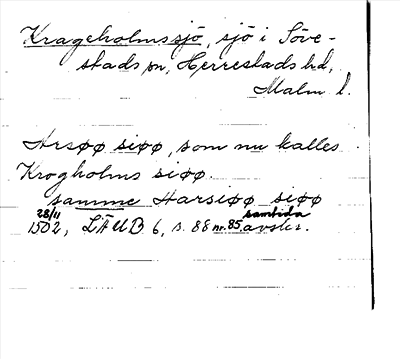 Krageholmssjö, sjö i Söve-
stads sn, Herrestads hd,
Malm l.
Arsøø siøø, som nu kalles
Krogholms siøø.
samme Harsiøø siøø
28/11 samtida
1502, LÄUB 6, s. 88 nr. 85 avskr.